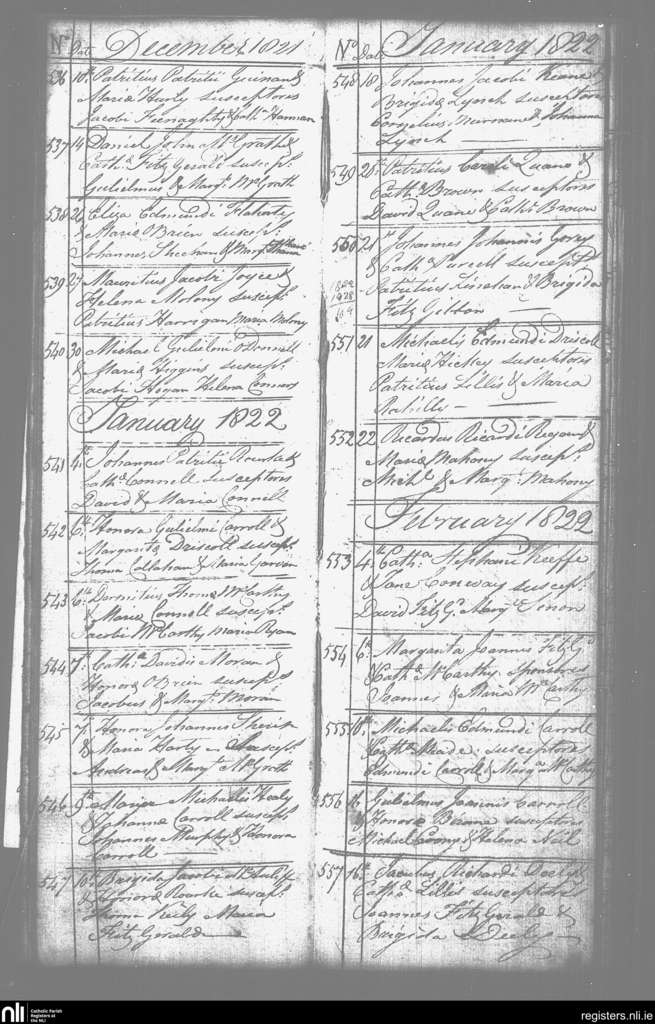 No Date December 1821
536 10th Patritius Patritii Guinan &
Maria Harly susceptores
Jacobi & Cathe Hannan
537 14 Daniel John McGrath &
Catha Fitz Gerald suscepts
Gulielmus & Margt McGrath
538 26 Eliza Edmundi Flaherty
& Maria O'Brien suscepts
Johannes Sheehan & Margt
539 27 Mauritius Jacobi Joyce &
Helena Molony suscepts
Patritius Harrigan Maria Molony
540 30 Michael Gulielmi O'Donnell
& Maria Higgins suscepts
Jacobi Hogan Helena Connors
January 1822
541 4th Johannes Patritii Rourke &
Catha Connell susceptores
David & Maria Connell
542 6th Honora Gulielmi Carroll &
Margarita Driscoll suscepts
Thoma Callahan & Maria
543 6th Thoma McCarthy
& Maria Connell suscepts
Jacobi McCarthy Maria Ryan
544 7th Catha Davidis Moran &
Honora O'Brien suscepts
Jacobus & Margt Moran
545 7th Honora Johannis
& Maria Harty suscepts
Andreas & Margt McGrath
546 9th Michaelis Healy
& Johanna Carroll suscepts
Johannes Murphy & Honora
Carroll
547 10th Brigida Jacobi McAuliffe
& Honora Rourke suscepts
Thoma Kiely Maria
Fitz Gerald
No Date January 1822
548 18 Johannes Jacobi Keane &
Brigida Lynch susceptores
Cornelius & Johanna
Lynch
549 20th Patritius Quane &
Catha Brown susceptores
David Quane & Cathe Brown
550 21st Johannes Johannis Gorry
& Catha Purcell suscepts
Patritius Linehan & Brigida
Fitz Gibbon
551 21 Michaelis Edmundi Driscoll
Maria Hickey susceptores
Patritius Lillis & Maria
552 22 Ricardus Ricardi Regan &
Maria Mahony suscepts
Michl & Margt Mahony
February 1822
553 4th Catha Stephani Keeffe
& Jane Conway suscepts
David Fitz Gd Margt
554 6th Margarita Joannis Fitz Gd
& Catha McCarthy Sponsores
Joannes & Maria McCarthy
555 10th Michaelis Edmundi Carroll
Catha Meade susceptores
Edmundi Carroll & Margt McCarthy
556 16 Gulielmus Joannis Carroll
& Honora susceptores
Michael & Helena Neil
557 16th Ricardi Deely &
Catha Lillis susceptores
Joannes Fitz Gerald &
Brigida Deely
nli Catholic Parish
Registers at
the NLI
registers.nli.ie